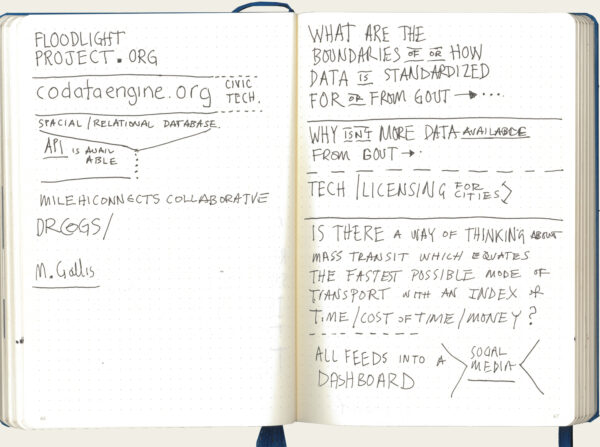 FLOODLIGHT
PROJECT.ORG
codataengine.org
CIVIC
TECH.
SPACIAL/RELATIONAL DATABASE.
API IS AVAIL
ABLE
MILEHICONNECTS COLLABORATIVE
DRCOGS/
M. Gallis
WHAT ARE THE
BOUNDARIES OF OR HOW
DATA IS STANDARDIZED
FOR OR FROM GOVT → ...
WHY ISN'T MORE DATA AVAILABLE
FROM GOVT → .
TECH / LICENSING FOR
CITIES
IS THERE A WAY OF THINKING ABOUT
MASS TRANSIT WHICH EQUATES
THE FASTEST POSSIBLE MODE OF
TRANSPORT WITH AN INDEX OF
TIME/COST OF TIME/MONEY?
ALL FEEDS INTO A
DASHBOARD
SOCIAL
MEDIA